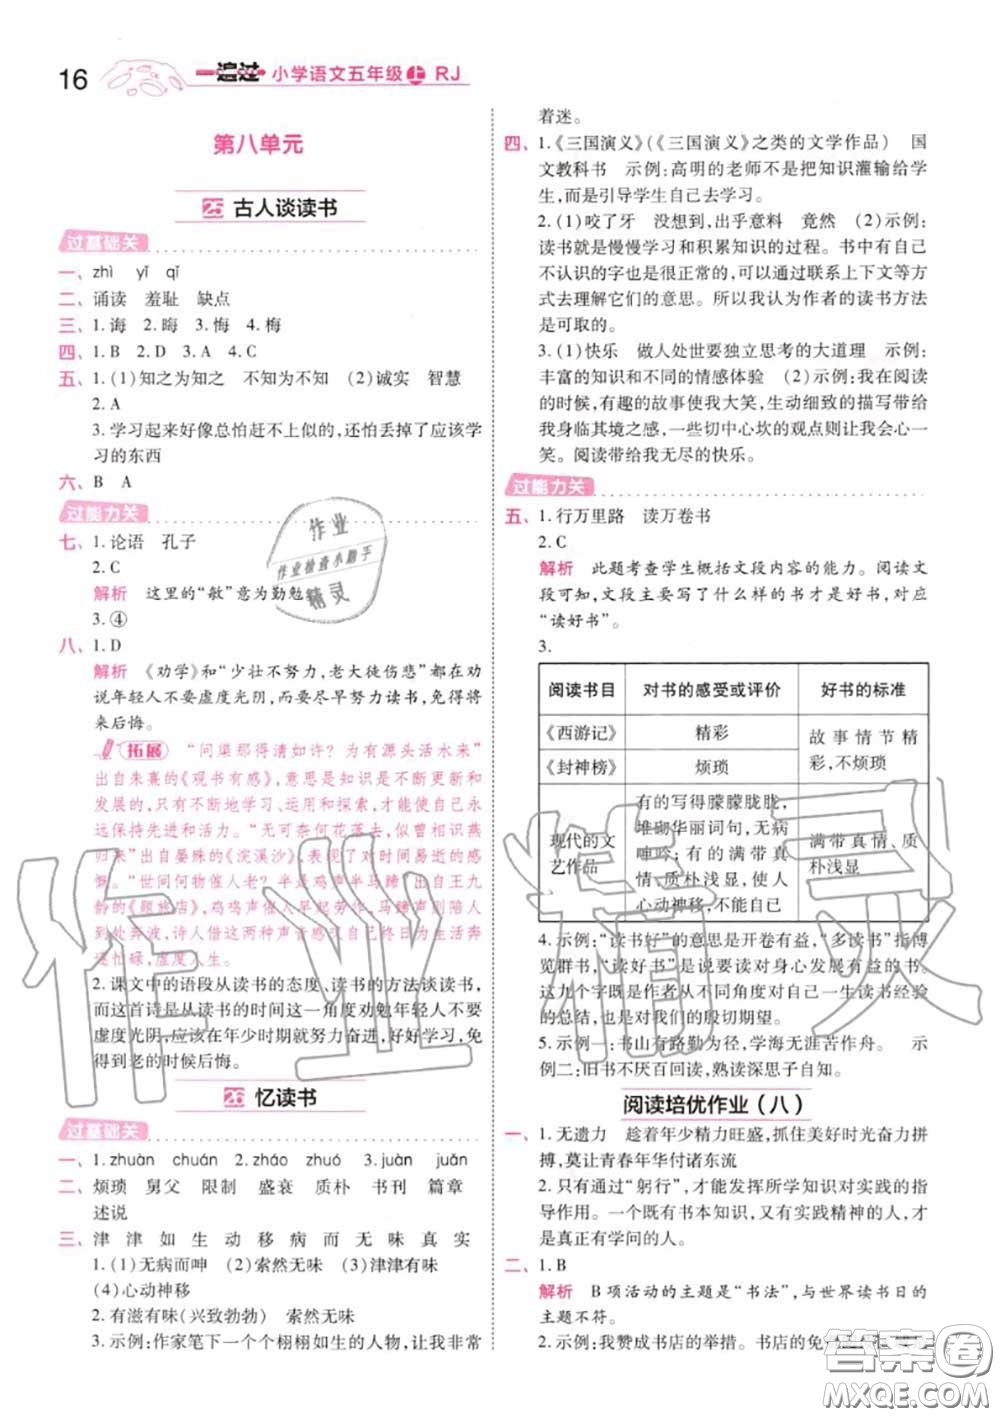 16
一遍过 小学语文五年级上 RJ
第八单元
25 古人谈读书
过基础关
一、zhì yǐ qǐ
二、诵读 羞耻 缺点
三、1.海 2.晦 3.悔 4.梅
四、1.B 2.D 3.A 4.C
五、1.(1)知之为知之 不知为不知 (2)诚实 智慧
2.A
3.学习起来好像总怕赶不上似的,还怕丢掉了应该学
习的东西
六、B A
过能力关
七、1.论语 孔子
2.C
解析 这里的“敏”意为勤勉
3.④
八、1.D
解析 《劝学》和“少壮不努力,老大徒伤悲”都在劝
说年轻人不要虚度光阴,而应尽早努力读书,免得将
来后悔。
拓展 “问渠那得清如许?为有源头活水来”
出自朱熹的《观书有感》,意思是知识是不断更新和
发展的,只有不断地学习、运用和探索,才能使自己永
远保持先进和活力。“无可奈何花落去,似曾相识燕
归来”出自晏殊的《浣溪沙》,表现了对时间易逝的感
慨。“世间何物催人老?半是鸡声半马蹄”出自王九
龄的《题旅店》,鸡鸣声催人早起劳作,马蹄声则陪人
到处奔波,诗人借这两种声音感叹自己终日为生活奔
波忙碌,虚度人生。
2.课文中的语段从读书的态度、读书的方法谈读书,
而这首诗是从读书的时间这一角度劝勉年轻人不要
虚度光阴,应该在年少时期就努力奋进,好好学习,免
得到老的时候后悔。
26 忆读书
过基础关
一、1.zhuàn chuán 2.zháo zhuó 3.juàn juǎn
二、烦琐 舅父 限制 盛衰 质朴 书刊 篇章
述说
三、津 津 如 生 动 移 病 而 无 味 真 实
1.(1)无病而呻 (2)索然无味 (3)津津有味
(4)心动神移
2.有滋有味(兴致勃勃) 索然无味
3.示例:作家笔下一个个栩栩如生的人物,让我非常
着迷。
四、1.《三国演义》(《三国演义》之类的文学作品) 国
文教科书 示例:高明的老师不是把知识灌输给学
生,而是引导学生自己去学习。
2.(1)咬了牙 没想到,出乎意料 竟然 (2)示例:
读书就是慢慢学习和积累知识的过程。书中有自己
不认识的字是很正常的,可以通过联系上下文等方
式去理解它们的意思。所以我认为作者的读书方法
是可取的。
3.(1)快乐 做人处世要独立思考的大道理 示例:
丰富的知识和不同的情感体验 (2)示例:我在阅读
的时候,有趣的故事使我大笑,生动细致的描写带给
我身临其境之感,一些切中心坎的观点则让我会心一
笑。阅读带给我无尽的快乐。
过能力关
五、1.行万里路 读万卷书
2.C
解析 此题考查学生概括文段内容的能力。阅读文
段可知,文段主要写了什么样的书才是好书,对应
“读好书”。
3.
阅读书目 对书的感受或评价 好书的标准
《西游记》 精彩 故事情节精
彩,不烦琐
《封神榜》 烦琐
现代的文
艺作品 有的写得朦朦胧胧,
堆砌华丽词句,无病
呻吟;有的满带真
情、质朴浅显,使人
心动神移,不能自已 满带真情、质
朴浅显
4.示例:“读书好”的意思是开卷有益,“多读书”指博
览群书,“读好书”是说要读对身心发展有益的书。
这九个字既是作者从不同角度对自己一生读书经验
的总结,也是对我们的殷切期望。
5.示例一:书山有路勤为径,学海无涯苦作舟。 示
例二:旧书不厌百回读,熟读深思子自知。
阅读培优作业(八)
一、1.无遗力 趁着年少精力旺盛,抓住美好时光奋力拼
搏,莫让青春年华付诸东流
2.只有通过“躬行”,才能发挥所学知识对实践的指
导作用。一个既有书本知识,又有实践精神的人,才
是真正有学问的人。
二、1.B
解析 B项活动的主题是“书法”,与世界读书日的
主题不符。
2.示例:我赞成书店的举措。书店的
作业
作业检查小助手
精灵
作业精灵
答案圈
MXQE.COM